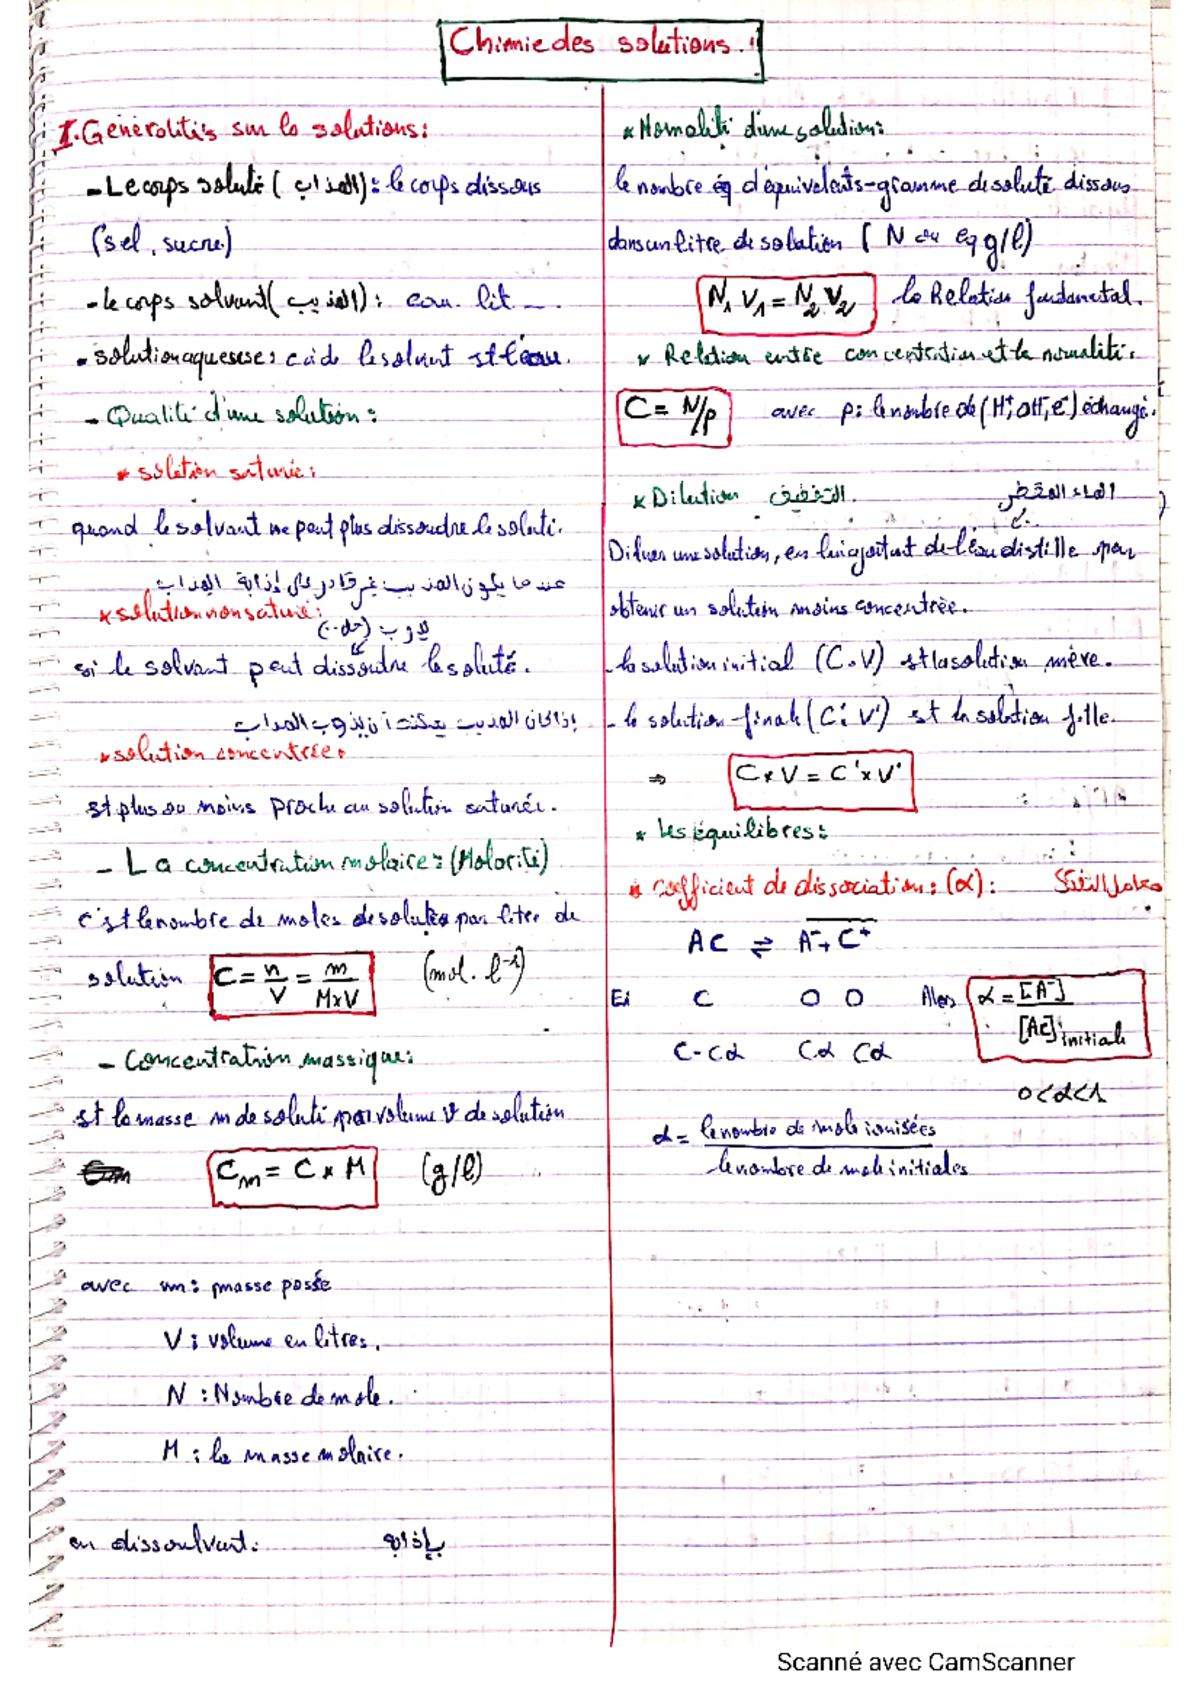 Chimie des solutions.
I. Généralités sur la solutions:
- Le corps soluté (المذاب): le corps dissous
(sel, sucre)
- le corps solvant (المذيب): eau. lit ...
- solution aqueuse: càd le solvant st l'eau.
- Qualité d'une solution:
* solution saturée:
quand le solvant ne peut plus dissoudre le soluté.
عندما يكون المذيب غير قادر على إذابة المذاب
* solution non saturé:
si le solvant peut dissoudre le soluté.
إذا كان المذيب يمكنه أن يذوب المذاب
* solution concentrée:
st plus ou moins proche au solution saturée.
- La concentration molaire: (Molarité)
c'st le nombre de moles de solutés par liter de
solution C = n/V = m/M×V (mol. l⁻¹)
- Concentration massique:
st la masse m de soluté par volume V de solution
Cm = C × M (g/l)
avec m: masse posée
V: volume en litres.
N: Nombre de mole.
M: la masse molaire.
en dissoulvant: بإذابة
* Normalité d'une solution:
le nombre éq d'équivalents-gramme de soluté dissous
dans un litre de solution (N ou eq g/l)
N₁ V₁ = N₂ V₂ la Relation fondamental.
* Relation entre concentration et la normalité:
C = N/p avec p: le nombre de (H⁺, OH⁻, e⁻) échangé.
* Dilution التخفيف. الماء المقطر
Diluer une solution, en lui ajoutant de l'eau distille pour
obtenir un solution moins concentrée.
- la solution initial (C.V) st la solution mère.
- la solution finale (C', V') st la solution fille.
⇒ C × V = C' × V'
* Les équilibres:
* coefficient de dissociation: (α): معامل التفكك
AC ⇌ A⁻ + C⁺
Ei C O O Alors α = [A⁻]/[AC]initiale
C-Cα Cα Cα
0<α<1
α = le nombre de mole ionisées
le nombre de mole initiales
Scanné avec CamScanner